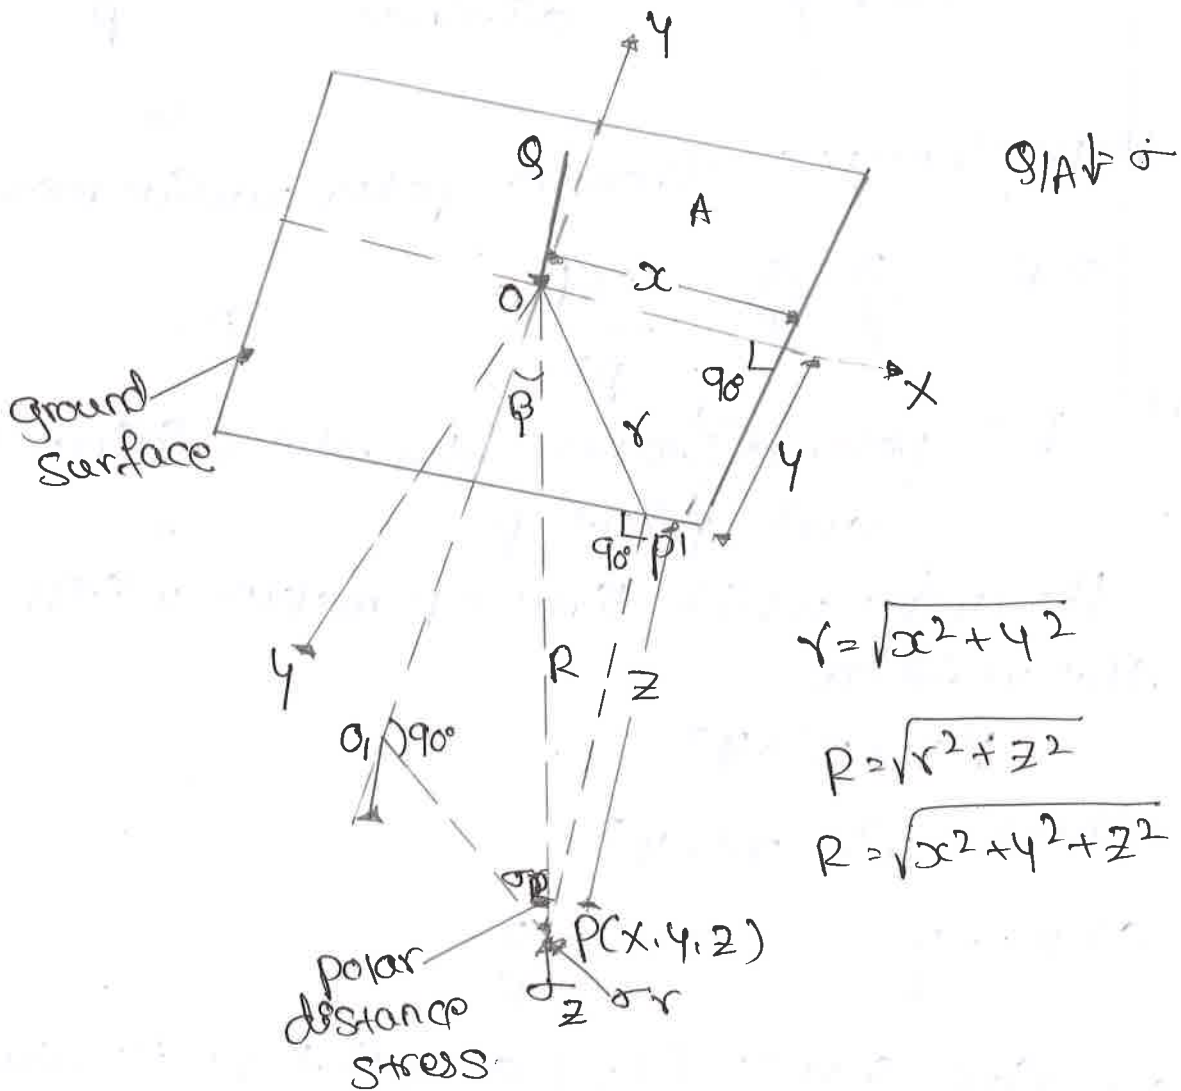 y
Q
Q/A↓= σ
A
x
O
90°
X
ground
surface
β
r
y
90°
P'
y
R
Z
r=√x²+y²
O₁
90°
R=√r²+z²
R=√x²+y²+z²
σR
P(x,y,z)
polar
distance
stress
σz
σr